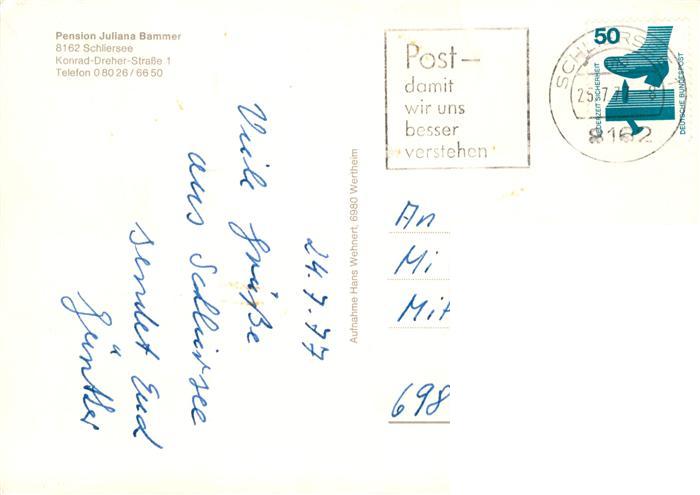 Pension Juliana Bammer
8162 Schliersee
Konrad-Dreher-Straße 1
Telefon 0 80 26 / 66 50
Post –
damit
wir uns
besser
verstehen
50
JEDERZEIT SICHERHEIT
DEUTSCHE BUNDESPOST
SCHLIERS
8162
24.7.77
Viele Grüße
aus Schliersee
sendet Eud
Günther
Aufnahme Hans Wehnert, 6980 Wertheim
An
Mi
Mit
698